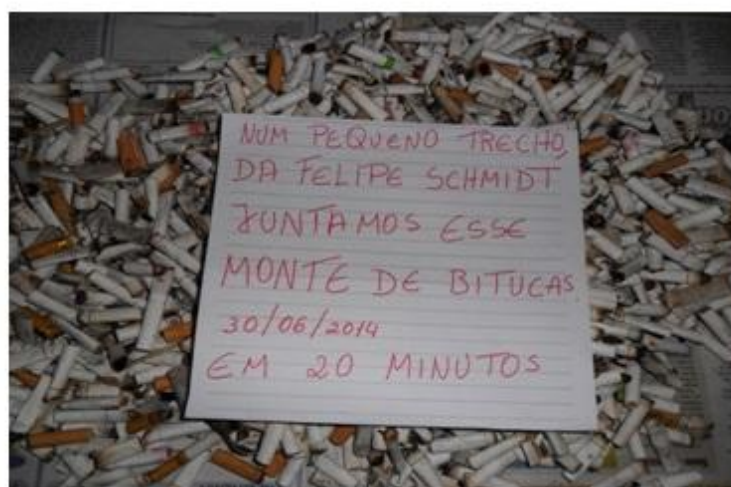 NUM PEQUENO TRECHO,
DA FELIPE SCHMIDT
JUNTAMOS ESSE
MONTE DE BITUCAS
30/06/2014
EM 20 MINUTOS